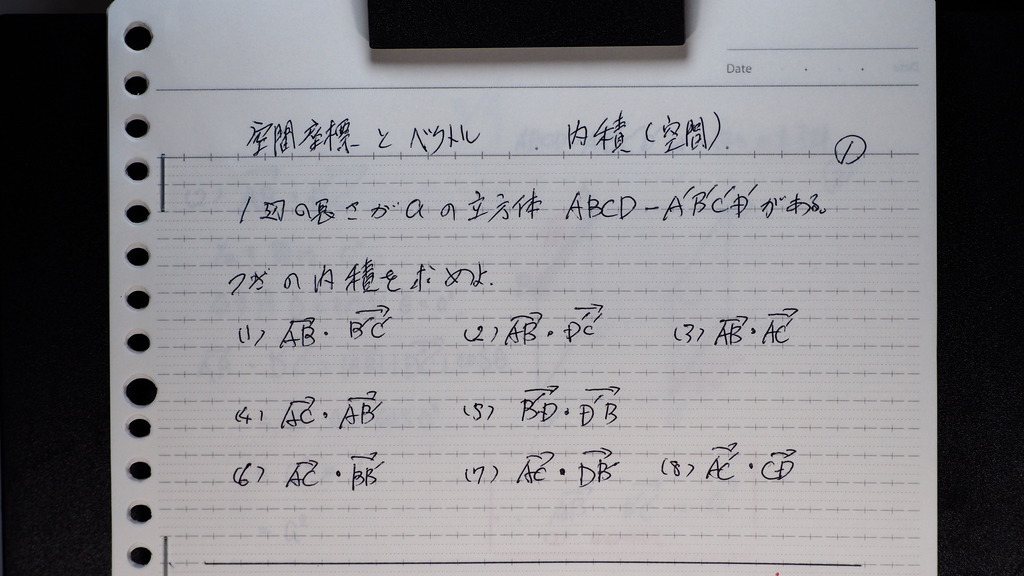 Date
空間座標とベクトル 内積(空間).
①
1辺の長さがaの立方体 ABCD-A'B'C'D'がある。
つぎの内積を求めよ.
(1) AB・B'C' (2) AB・D'C' (3) AB・AC'
(4) AC・AB' (5) B'D・D'B
(6) AC・BB' (7) AC・DB' (8) AC'・CD